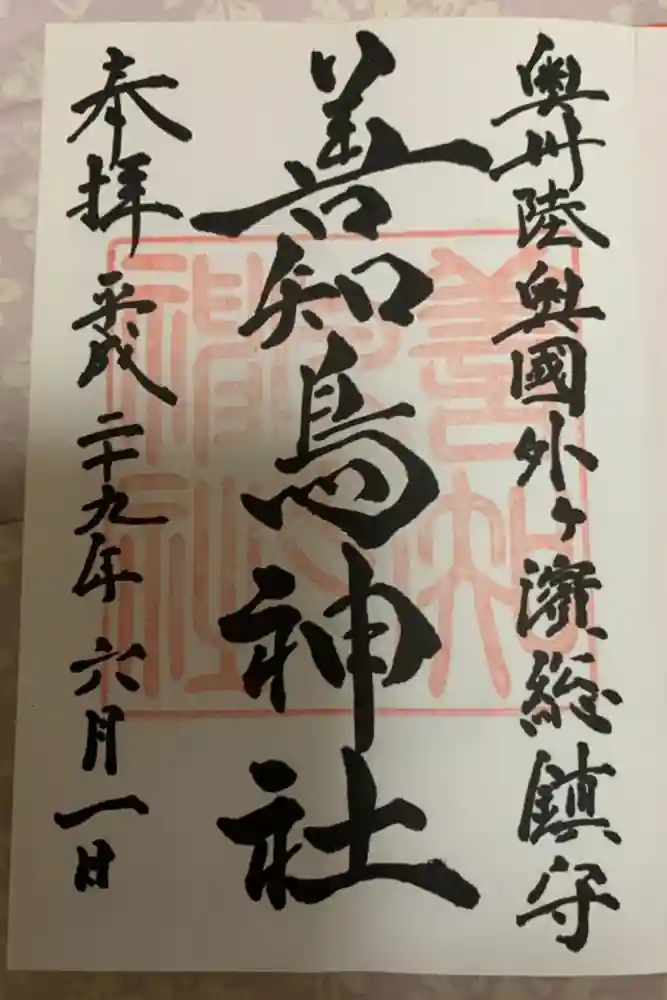 奥州陸奥國外ヶ濱総鎮守
善知鳥神社
奉拝 平成二十九年六月一日
善知鳥神社